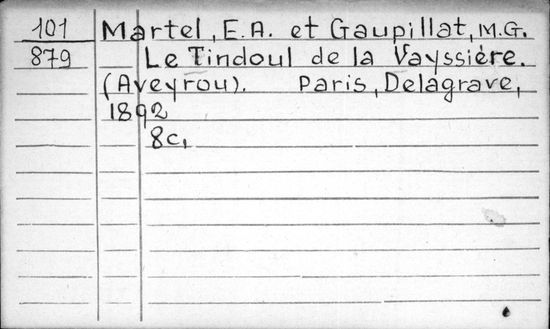 101 Martel, E.A. et Gaupillat, M.G.
879 Le Tindoul de la Vayssière.
(Aveyrou). Paris, Delagrave,
1892
8c,